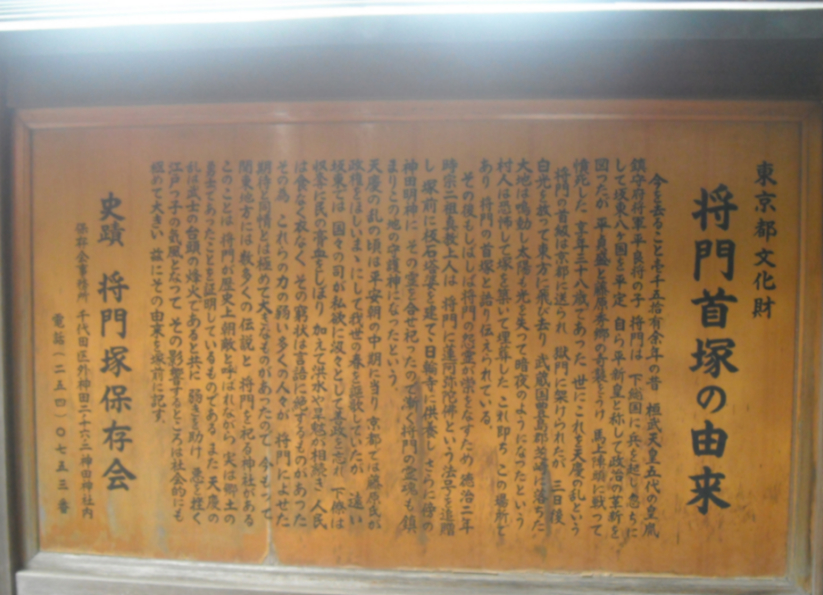 東京都文化財
将門首塚の由来
今を去ること壱千五拾有余年の昔 桓武天皇五代の皇胤
鎮守府将軍平良将の子 将門は 下総国に兵を起し忽ちに
して坂東八ヶ国を平定 自ら平新皇と称して政治の革新を
図ったが 平貞盛と藤原秀郷の奇襲をうけ 馬上陣頭に戦って
憤死した 享年三十八歳であった 世にこれを天慶の乱という
将門の首級は京都に送られ 獄門に架けられたが 三日後
白光を放って東方に飛び去り 武蔵国豊島郡芝崎に落ちた
大地は鳴動し太陽も光を失って暗夜のようになったという
村人は恐怖して塚を築いて埋葬した これ即ち この場所で
あり 将門の首塚と語り伝えられている。
その後もしばしば将門の怨霊が祟をなすため 徳治二年
時宗二祖真教上人は 将門に蓮阿弥陀佛という法号を追贈
し 塚前に板石塔婆を建て 日輪寺に供養し さらに傍の
神田明神に その霊を合せ祀ったので漸く将門の霊魂も鎮
まりこの地の守護神になったという。
天慶の乱の頃は平安朝の中期に当り 京都では藤原氏が
政権をほしいまゝにして我世の春を謳歌していたが 遠い
坂東では 国々の司が私欲に汲々として善政を忘れ 下僚は
収奪に民の膏血をしぼり 加えて洪水や旱魃が相続き 人民
は食なく衣なく その窮状は言語に絶するものがあった
その為 これらの力の弱い多くの人々が 将門によせた
期待と同情とは極めて大きなものがあったので 今もって
関東地方には数多くの伝説と 将門を祀る神社がある
このことは 将門が歴史上朝敵と呼ばれながら 実は郷土の
勇士であったことを証明しているものである また 天慶の
乱は武士の台頭の烽火であると共に 弱きを助け 悪を挫く
江戸っ子の気風となって その影響するところは社会的にも
極めて大きい 茲にその由来を塚前に記す。
史蹟 将門塚保存会
保存会事務所 千代田区外神田二ー十六ー二 神田神社内
電話(二五四)〇七五三番